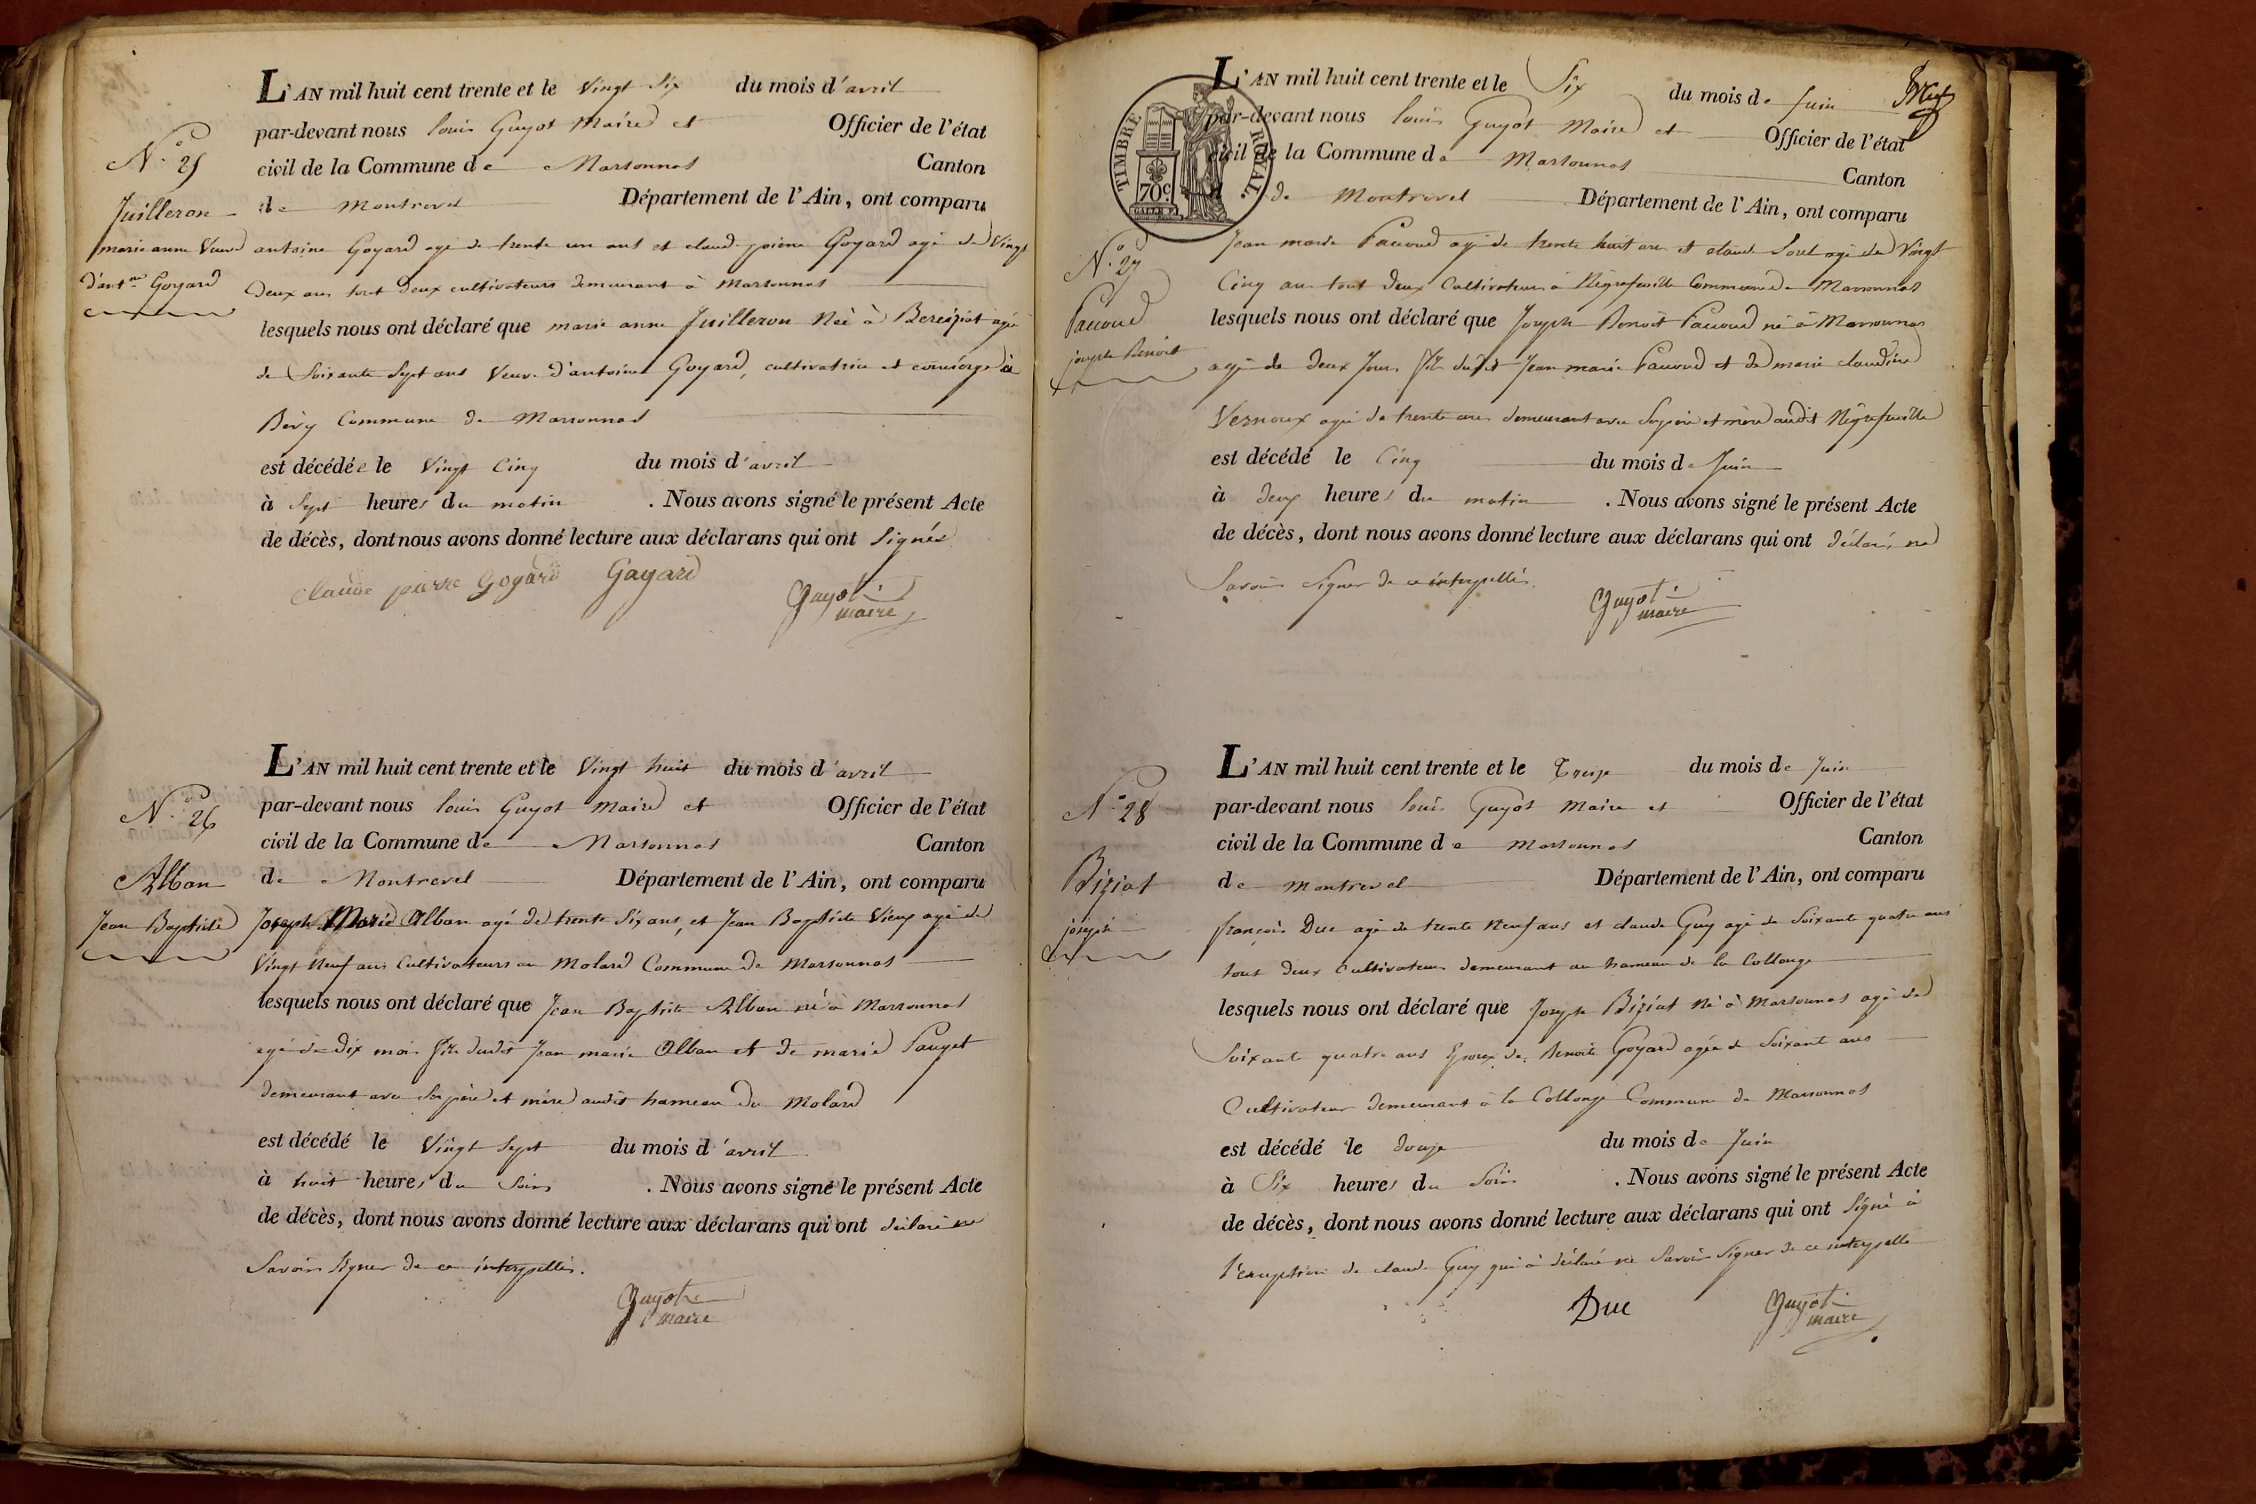 N.° 25
Juilleron
marie anne Veuve
d'ant.ne Goyard
L'AN mil huit cent trente et le Vingt Six du mois d'avril
par-devant nous louis Guyot Maire et Officier de l'état
civil de la Commune de Marsonnas Canton
de Montrevel Département de l'Ain, ont comparu
antoine Goyard agé de trente un ans et claude pierre Goyard agé de Vingt
deux ans tout deux cultivateurs demeurant à Marsonnas
lesquels nous ont déclaré que marie anne Juilleron Née à Bereiziat agée
de Soixante Sept ans Veuve d'antoine Goyard, cultivatrice et concierge à
Bévy Commune de Marsonnas
est décédée le Vingt Cinq du mois d'avril
à Sept heures du matin . Nous avons signé le présent Acte
de décès, dont nous avons donné lecture aux déclarans qui ont Signés
claude pierre Goyard Goyard Guyot
maire
N.° 26
Alban
Jean Baptiste
L'AN mil huit cent trente et le Vingt huit du mois d'avril
par-devant nous louis Guyot Maire et Officier de l'état
civil de la Commune de Marsonnas Canton
de Montrevel Département de l'Ain, ont comparu
Joseph Marie Alban agé de trente Six ans, et Jean Baptiste Vieux agé de
Vingt Neuf ans Cultivateurs au Molard Commune de Marsonnas
lesquels nous ont déclaré que Jean Baptiste Alban né à Marsonnas
agé de Dix mois fils dudit Jean marie Alban et de marie Pauget
demeurant avec Ses père et mère audit hameau du Molard
est décédé le Vingt Sept du mois d'avril
à huit heures du Soir . Nous avons signé le présent Acte
de décès, dont nous avons donné lecture aux déclarans qui ont déclaré ne
Savoir Signer de ce interpellés.
Guyot
maire
TIMBRE ROYAL
70c
L'AN mil huit cent trente et le Six du mois de Juin
par-devant nous louis Guyot Maire et Officier de l'état
civil de la Commune de Marsonnas Canton
de Montrevel Département de l'Ain, ont comparu
N.° 27
Pauoud
joseph Benoit
Jean marie Pauoud agé de trente huit ans et claude Sorel agé de Vingt
Cinq ans tout deux Cultivateurs à Négrefeuille Commune de Marsonnas
lesquels nous ont déclaré que Joseph Benoit Pauoud né à Marsonnas
agé de deux Jours fils dudit Jean marie Pauoud et de marie claudine
Vernoux agée de trente ans demeurant avec Ses père et mère audit Négrefeuille
est décédé le Cinq du mois de Juin
à deux heures du matin . Nous avons signé le présent Acte
de décès, dont nous avons donné lecture aux déclarans qui ont déclaré ne
Savoir Signer de ce interpellés.
Guyot
maire
N.° 28
Biziat
joseph
L'AN mil huit cent trente et le Treize du mois de Juin
par-devant nous louis Guyot Maire et Officier de l'état
civil de la Commune de Marsonnas Canton
de Montrevel Département de l'Ain, ont comparu
françois Duc agé de trente Neuf ans et claude Guy agé de Soixante quatre ans
tout deux Cultivateurs demeurant au hameau de la Collonge
lesquels nous ont déclaré que Joseph Biziat Né à Marsonnas agé de
Soixant quatre ans Epoux de Benoite Goyard agée de Soixant ans
Cultivateur demeurant à la Collonge Commune de Marsonnas
est décédé le douze du mois de Juin
à Six heures du Soir . Nous avons signé le présent Acte
de décès, dont nous avons donné lecture aux déclarans qui ont Signé à
l'exception de claude Guy qui à déclaré ne Savoir Signer de ce interpellé
Duc Guyot
maire